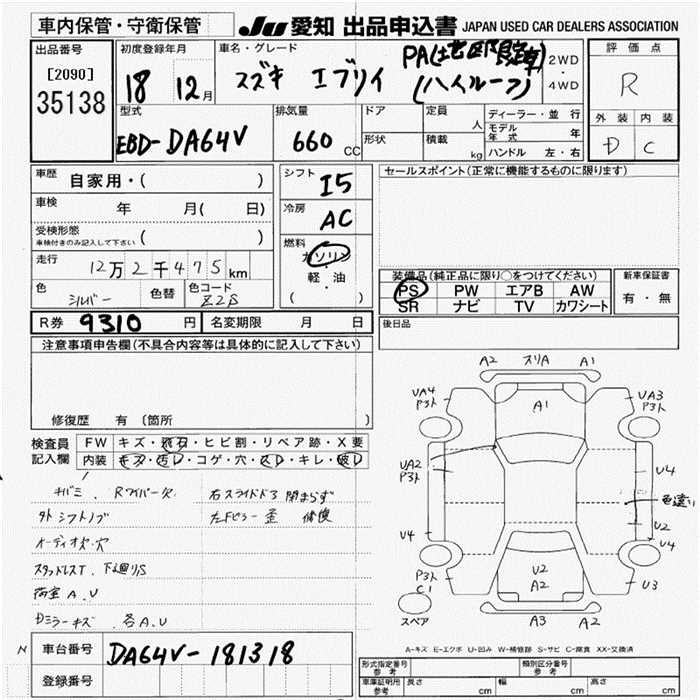 車内保管・守衛保管 JU 愛知 出品申込書 JAPAN USED CAR DEALERS ASSOCIATION
出品番号 初度登録年月 車名・グレード 評価点
[2090] 18 12月 スズキ エブリイ PA(地区限定車) 2WD
35138 (ハイルーフ) 4WD R
型式 排気量 ドア 定員 人 ディーラー・並行 外装 内装
EBD-DA64V 660 CC 形状 積載 kg モデル年式 年 D C
ハンドル 左・右
車歴 自家用・( ) シフト I5 セールスポイント(正常に機能するものに限ります)
車検 年 月( 日) 冷房 AC
受検形態 車検付きのみ記入して下さい ( )
走行 12万2千475km 燃料 ガソリン・軽・油 ( )
装備品(純正品に限り○をつけてください) 新車保証書
色 シルバー 色替 色コード Z2S PS PW エアB AW 有・無
SR ナビ TV カワシート
R券 9310 円 名変期限 月 日 後日品
注意事項申告欄(不具合内容等は具体的に記入して下さい)
修復歴 有(箇所
検査員記入欄 FW キズ・飛石・ヒビ割・リペア跡・X要
内装 キズ・汚レ・コゲ・穴・スレ・キレ・破レ
Rワイパー欠 右スライドドア閉まらず
外シフトノブ 左Fピラー歪 修復
オーディオ欠・穴
スタッドレスT. 下廻りS
荷室A.U
Dミラーキズ. 各A.U
A2 スリA A1
UA4 P3ト A1 UA3 P3ト
UA2 P3ト U4
色違い
U2
U4 U4
P3ト C1 U2 A2 U3
スペア A3 A2
A-キズ E-エクボ U-凹み W-補修跡 S-サビ C-腐食 XX-交換済
N 車台番号 DA64V-181318
登録番号
形式指定番号 参考 類別区分番号 参考
車庫証明用 参考 長さ cm 幅 cm 高さ cm